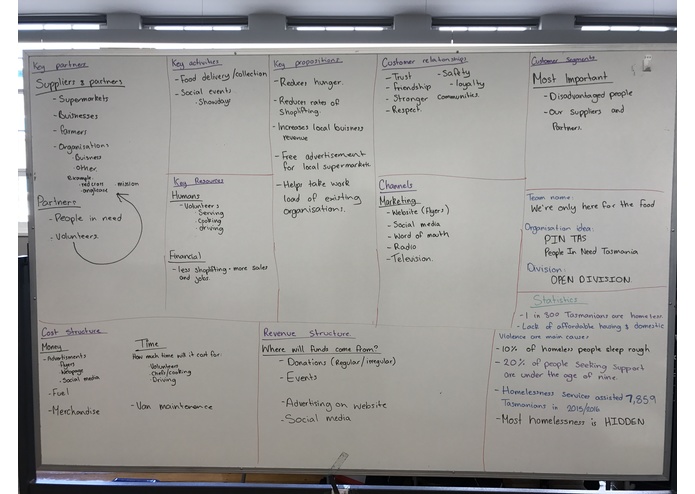 Key partners
Suppliers & partners
- Supermarkets
- Buisnesses
- Farmers
- Organisations
- Buisness
- Other.
Example.
- red cross
- anglicare
- mission
Partners
- People in need
- Volunteers.
Key activities
- Food delivery/collection
- Social events.
- Showdays
Key Resources
Humans
- Volunteers
Serving
cooking
driving
Financial
- less shoplifting - more sales
and jobs.
Key propositions
- Reduces hunger.
- Reduces rates of
Shoplifting.
- Increases local buisness
revenue
- Free advertisement
for local supermarkets.
- Helps take work
load of existing
organisations.
Customer relationships
- Trust
- Friendship
- Stronger communities.
- Respect.
- Safety
- loyalty
Channels
Marketing
- Website (flyers)
- Social media
- Word of mouth
- Radio
- Television.
Customer Segments
Most Important
- Disadvantaged people
- Our Suppliers and
Partners.
Team name:
We're only here for the food
Organisation idea:
PIN TAS
People In Need Tasmania
Division:
OPEN DIVISION.
Cost Structure
Money
- Advertisments
Flyers
Webpage
- Social media
- Fuel
- Merchandise
Time
How much time will it cost for:
Volunteers
Chefs/cooking
Driving
- Van maintenance
Revenue Structure
Where will funds come from?
- Donations (Regular/irregular)
- Events
- Advertising on website
- Social media
Statistics
- 1 in 300 Tasmanians are homeless.
- Lack of affordable housing & domestic
Violence are main causes
- 10% of homeless people sleep rough
- 20% of people seeking support
are under the age of nine.
- Homelessness services assisted 7,859
Tasmanians in 2015/2016
- Most homelessness is HIDDEN